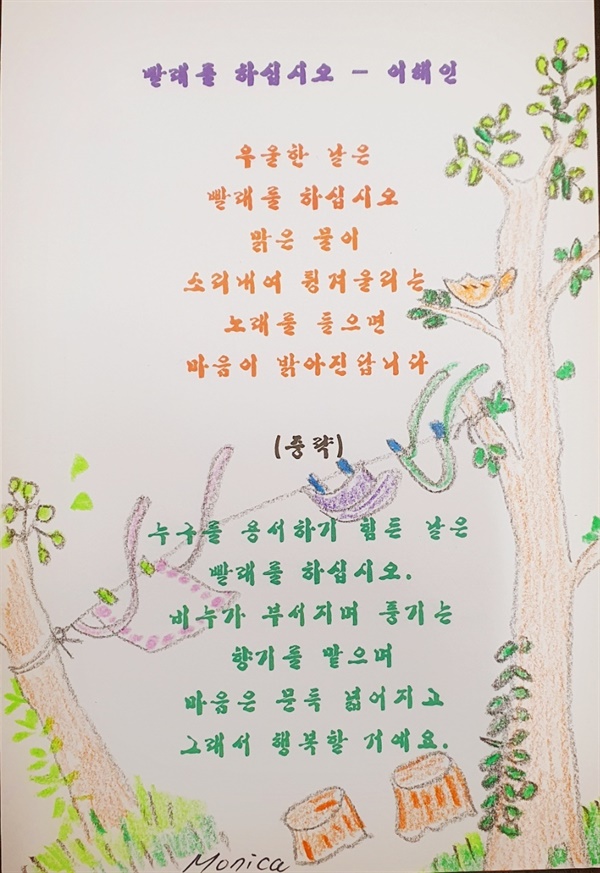 빨래를 하십시오 - 이해인
우울한 날은
빨래를 하십시오
맑은 물이
소리내어 튕겨울리는
노래를 들으면
마음이 밝아진답니다
(중략)
누구를 용서하기 힘든 날은
빨래를 하십시오.
비누가 부서지며 풍기는
향기를 맡으며
마음은 문득 넓어지고
그래서 행복할 거예요.
Monica